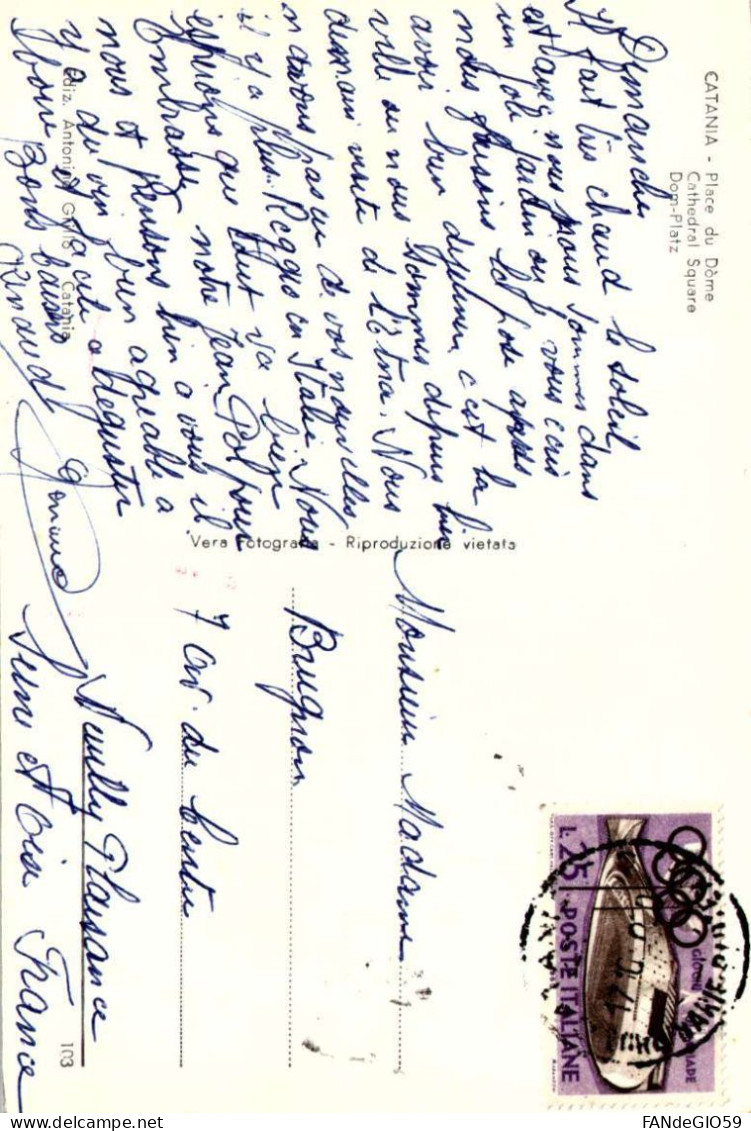 CATANIA - Place du Dôme
Cathedral Square
Dom-Platz
Dimanche
Il fait très chaud le soleil
est avec nous nous sommes dans
un joli jardin ou je vous ecris
nous faisons la pose après
avoir bien dejeuner c'est la
ville ou nous sommes depuis hier
demain visite de l'Etna. Nous
navons pas eu de vos nouvelles
il y a plus Reggio en Italie. Nous
esperons que tout va bien
Embrassez notre Jean Pol pour
nous et pensons bien a vous il
y a du vin bien agreable a
boire et facile a deguster
Bons baisers
Renaud
Ediz. Antonino Catania
Vera Fotografia - Riproduzione vietata
Monsieur Madame
Brugnon
7 av. du Centre
Neuilly Plaisance
Seine et Oise France
103
L. 25 POSTE ITALIANE
GIOCHI
17
FANdeGIO59